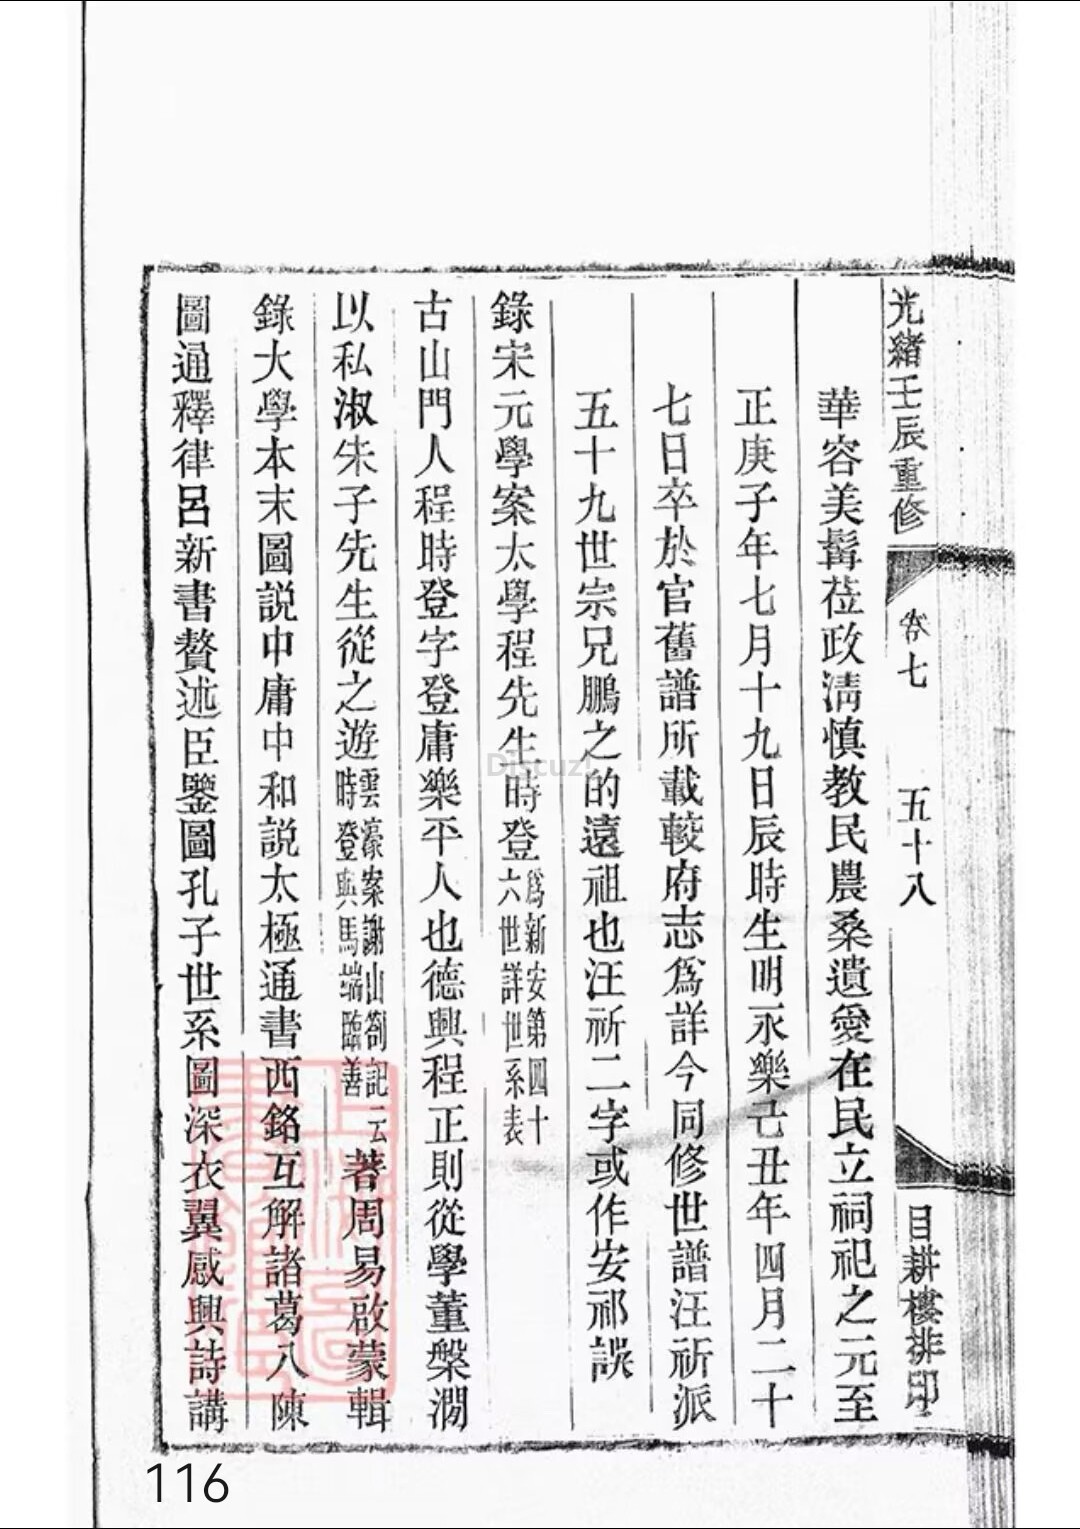 光緒壬辰重修 卷七 五十八 目耕樓排印
華容美髯莅政淸慎教民農桑遺愛在民立祠祀之元至
正庚子年七月十九日辰時生明永樂己丑年四月二十
七日卒於官舊譜所載較府志爲詳今同修世譜汪祈派
五十九世宗兄鵬之的遠祖也汪祈二字或作安祁誤
錄宋元學案太學程先生時登爲新安第四十
六世詳世系表
古山門人程時登字登庸樂平人也德興程正則從學董槃澗
以私淑朱子先生從之遊雲濠案謝山劄記云
時登與馬端臨善
著周易啟蒙輯
錄大學本末圖説中庸中和説太極通書西銘互解諸葛八陳
圖通釋律呂新書贅述臣鑒圖孔子世系圖深衣翼感興詩講
Discuz!
116